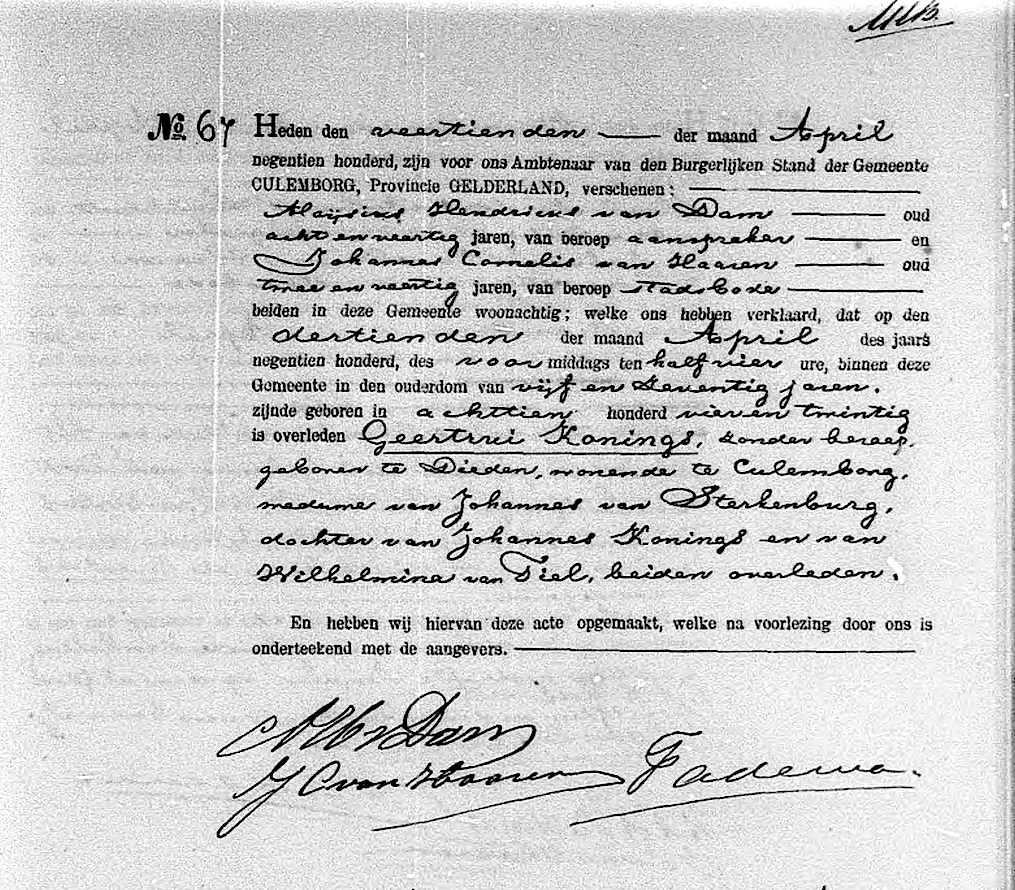 No. 67 Heden den veertienden der maand April
negentien honderd, zijn voor ons Ambtenaar van den Burgerlijken Stand der Gemeente
CULEMBORG, Provincie GELDERLAND, verschenen:
Aloijsius Hendricus van Dam oud
acht en veertig jaren, van beroep aanspreker en
Johannes Cornelis van Haaren oud
twee en veertig jaren, van beroep stadsbode
beiden in deze Gemeente woonachtig; welke ons hebben verklaard, dat op den
dertienden der maand April des jaars
negentien honderd, des voormiddags ten half vier ure, binnen deze
Gemeente in den ouderdom van vijf en zeventig jaren.
zijnde geboren in achttien honderd vier en twintig
is overleden Geertrui Konings, zonder beroep,
geboren te Dieden, wonende te Culemborg,
weduwe van Johannes van Sterkenburg,
dochter van Johannes Konings en van
Wilhelmina van Tiel, beiden overleden.
En hebben wij hiervan deze acte opgemaakt, welke na voorlezing door ons is
onderteekend met de aangevers.
AHvDam
J C van Haaren